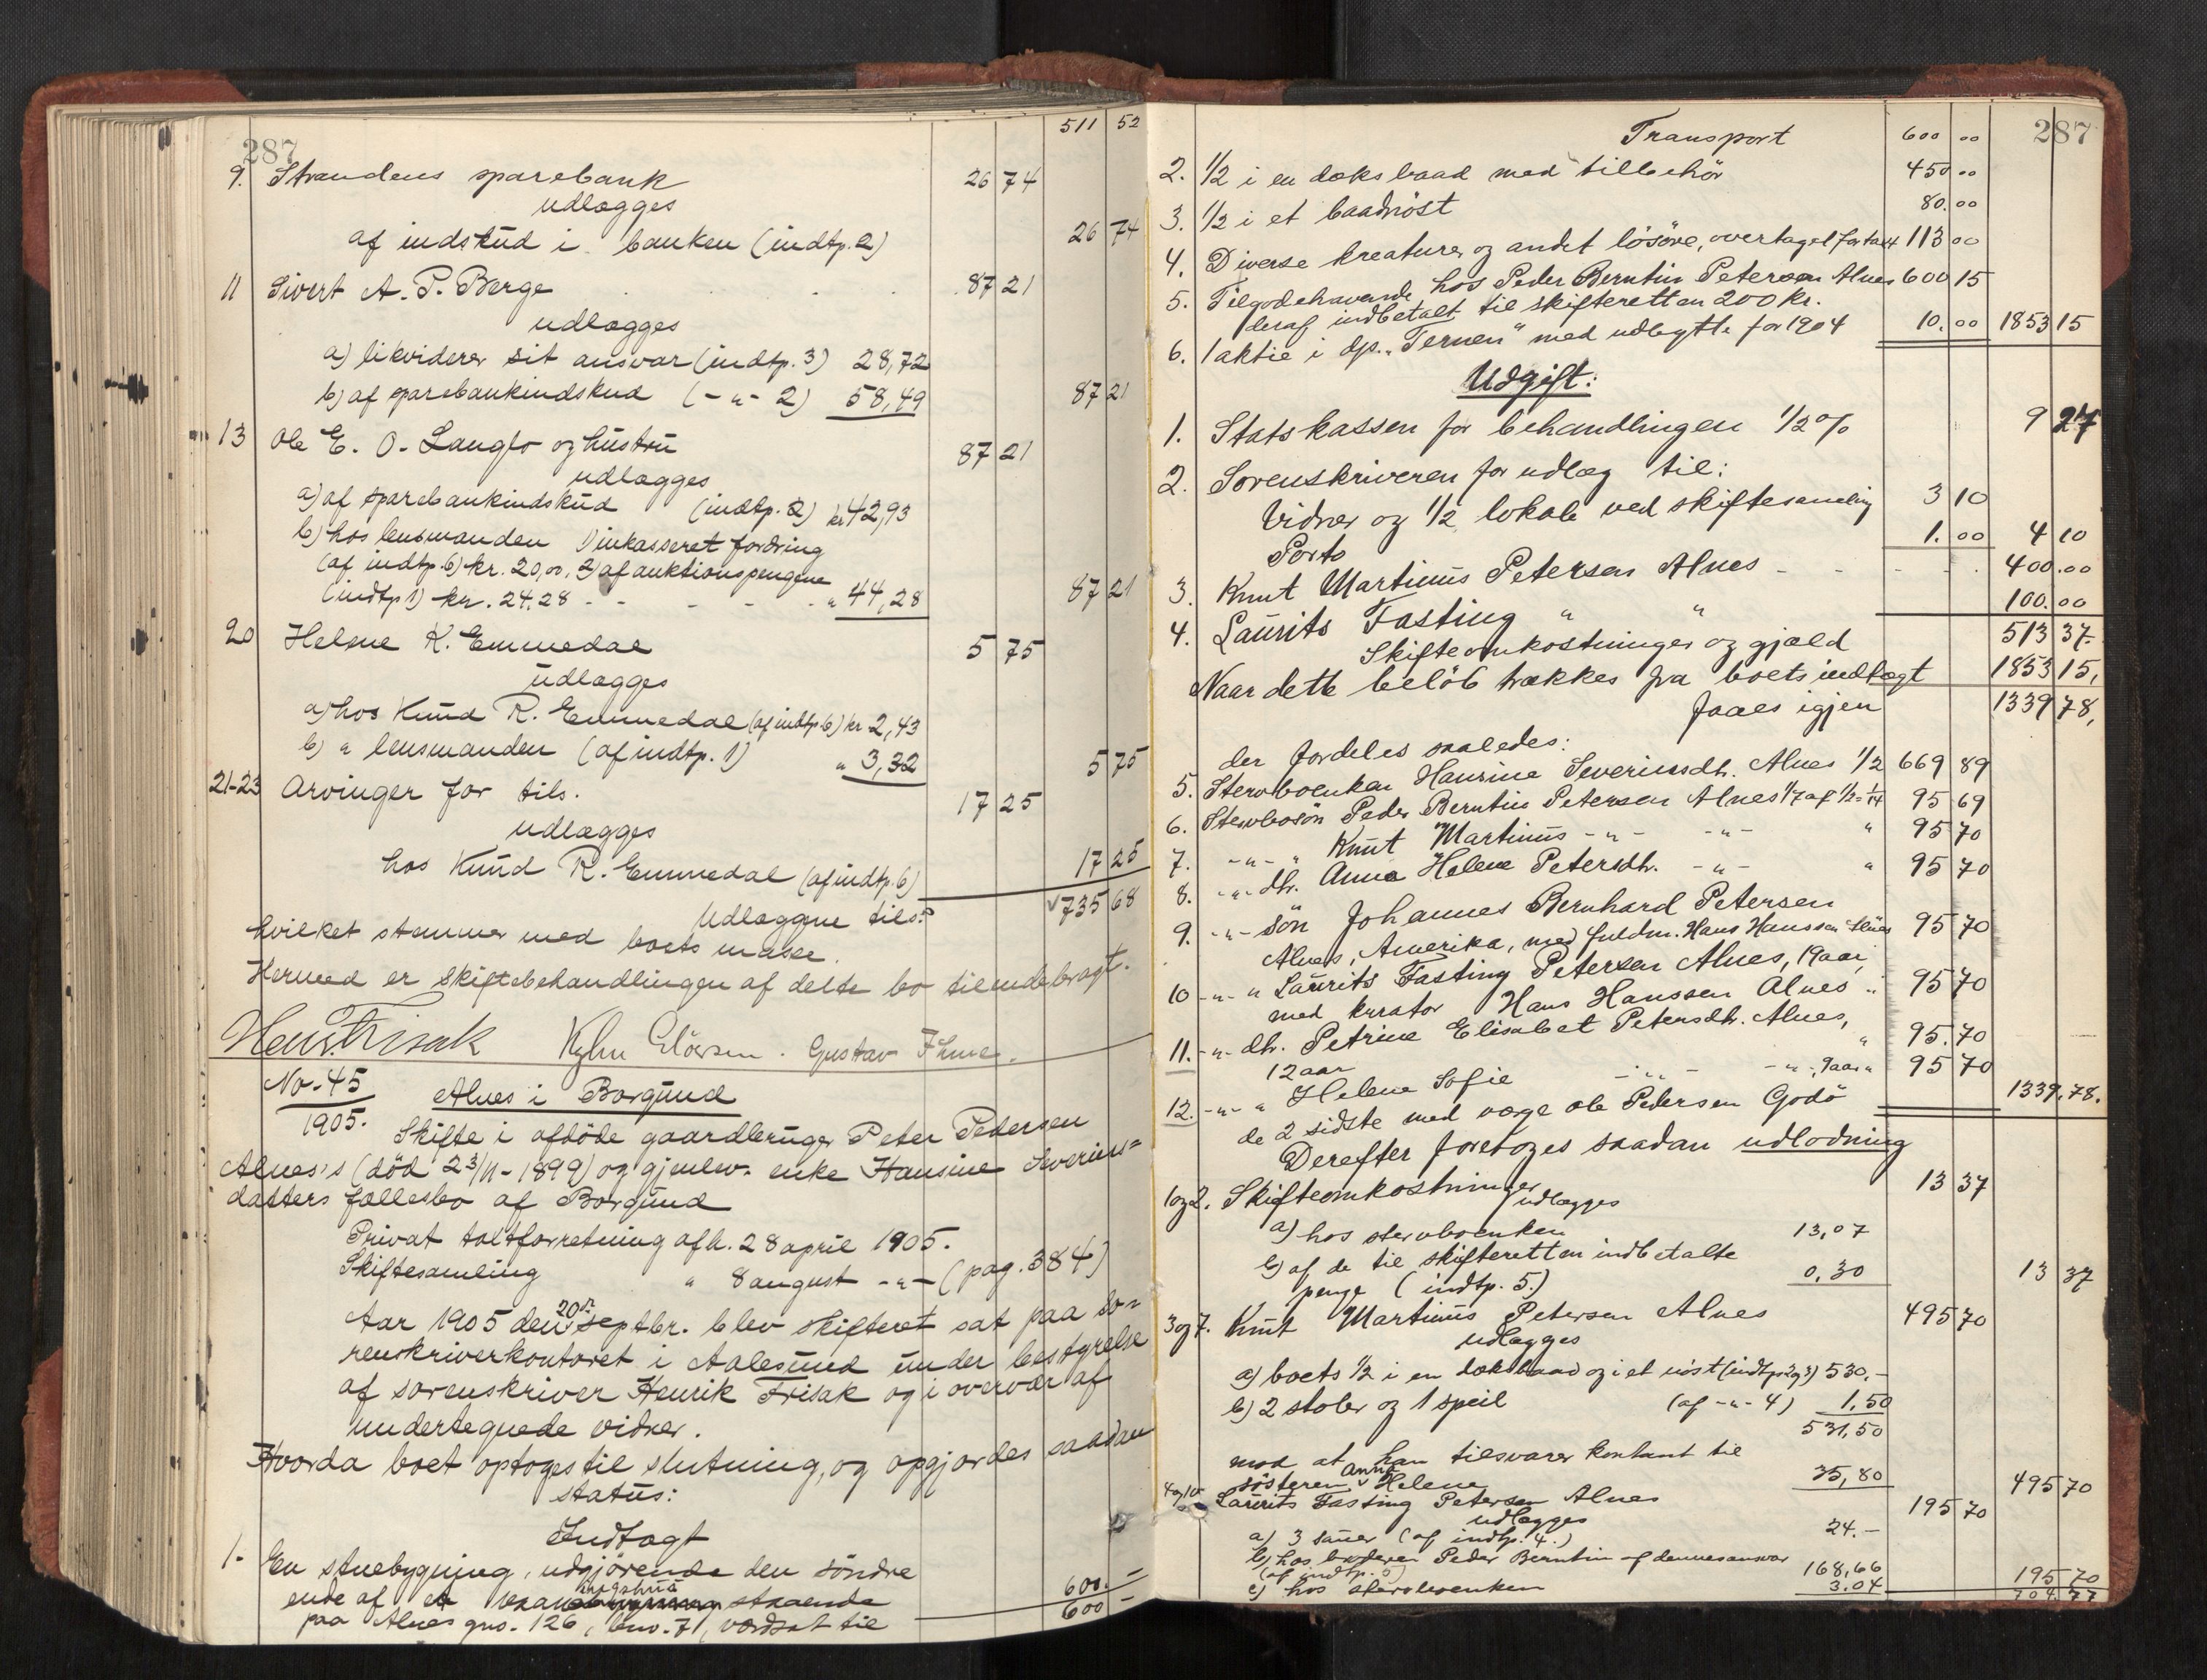 287
511 52
9. Strandens sparebank 26 74
udlægges
af indskud i banken (indtp. 2) 26 74
11 Sivert A. P. Berge 87 21
udlægges
a) likviderer sit ansvar (indtp. 3) 28,72
b) af sparebankindskud (-"- 2) 58,49 87 21
13 Ole E. O. Langlo og hustru 87 21
udlægges
a) af sparebankindskud (indtp. 2) kr 42,93
b) hos lensmanden 1) inkasseret fordring
(af indtp. 6) kr. 20,00, 2) af auktionspengene
(indtp 1) kr. 24.28 - - - - - " 44,28 87 21
20 Helene K. Emmedal 5 75
udlægges
a) hos Knud R. Emmedal (af indtp 6) kr 2,43
b) " lensmanden (af indtp. 1) " 3,32 5 75
21-23 Arvinger for tils. 17 25
udlægges
hos Knud R. Emmedal (af indtp. 6) 17 25
Udlæggene tils. 735 68
hvilket stemmer med boets masse.
Hermed er skiftebehandlingen af dette bo tilendebragt.
Henr. Frisak Gustav
No. 45
1905.
Alnes i Borgund
Skifte i afdöde gaardbruger Peter Pedersen
Alnes's (död 23/11-1899) og gjenlev. enke Hansine Severins=
datters fællesbo af Borgund
Privat taktforretning afh. 28 april 1905.
Skiftesamling " 8 august -"- (pag. 384)
Aar 1905 den 20de septbr. blev skifteret sat paa so-
renskriverkontoret i Aalesund under bestyrelse
af sorenskriver Henrik Frisak og i overvær af
undertegnede vidner.
Hvorda boet optoges til slutning, og opgjordes saadan
status:
Indtægt
1. En stuebygning, udgjörende den söndre
ende af et staaende 600. -
paa Alnes gno. 126, bno. 7, værdsat til 600 -
287
Transport 600 00
2. 1/2 i en dæksbaad med tilbehör 450 00
3. 1/2 i et baadnöst 80. 00
4. Diverse kreaturer og andet lösöre, overtaget for taxt 113 00
5. Tilgodehavende hos Peder Berntin Petersen Alnes 600 15
deraf indbetalt til skifteretten 200 kr.
6. 1 aktie i dp. "Ternen" med udbytte for 1904 10. 00 1853 15
Udgift:
1. Statskassen for behandlingen 1/2 % 9 27
2. Sorenskriveren for udlæg til:
Vidner og 1/2 lokale ved skiftesamling 3 10
Porto 1. 00 4 10
3. Knut Martinus Petersen Alnes - - - - 400. 00
4. Laurits Fasting " " 100. 00
Skifteomkostninger og gjæld 513 37.
Naar dette belöb trækkes fra boets indtægt 1853 15,
faaes igjen 1339 78,
der fordeles saaledes:
5. Stervboenken Hansine Severinsdtr. Alnes 1/2 669 89
6. Stervbosön Peder Berntin Petersen Alnes 1/7 af 1/2 = 1/14 95 69
7. -"- " Knut Martinus -"- -"- " 95 70
8. -"- dtr. Anna Helene Petersdtr. -"- " 95 70
9. -"- sön Johannes Bernhard Petersen
Alnes, Amerika, med fuldm. Hans Hanssen Alnes 95 70
10 -"- " Laurits Fasting Petersen Alnes, 19 aar,
med kurator Hans Hanssen Alnes " 95 70
11. -"- dtr. Petrine Elisabet Petersdtr. Alnes,
12 aar " 95. 70
12. -"- " Helene Sofie -"- -"-, 9 aar " 95 70
de 2 sidste med værge Ole Pedersen Godö 1339. 78.
Derefter foretoges saadan udlodning
1 og 2. Skifteomkostninger 13 37
udlægges
a) hos stervboenken 13,07
b) af de til skifteretten indbetalte
penge (indtp. 5.) 0,30 13 37
3 og 7. Knut Martinus Petersen Alnes 495 70
udlægges
a) boets 1/2 i en dæksbaad og i et nöst (indtp 2 og 3) 530. -
b) 2 stoler og 1 speil (af -"- 4) 1,50
531,50
mod at han tilsvarer kontant til
sösteren Anna Helene 35,80 495 70
4 og 10 Laurits Fasting Petersen Alnes 195 70
udlægges
a) 3 sauer (af indtp. 4.) 24. -
b) hos broderen Peder Berntin af dennes ansvar
(af indtp. 5) 168,66
c) hos stervboenken 3.04 195 70
704. 77